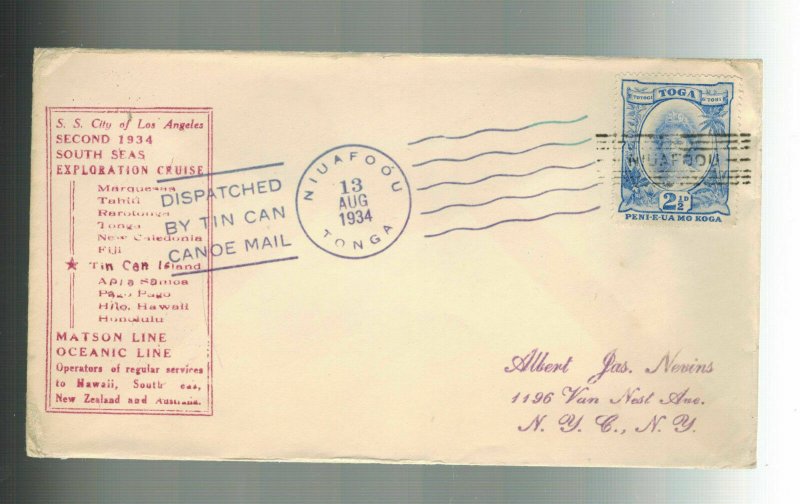 S. S. City of Los Angeles
SECOND 1934
SOUTH SEAS
EXPLORATION CRUISE
Marquesas
Tahiti
Rarotonga
Tonga
New Caledonia
Fiji
★ Tin Can Island
Apia Samoa
Pago Pago
Hilo, Hawaii
Honolulu
MATSON LINE
OCEANIC LINE
Operators of regular services
to Hawaii, South Seas,
New Zealand and Australia.
DISPATCHED
BY TIN CAN
CANOE MAIL
NIUAFOÓU
13
AUG
1934
TONGA
TOGA
TOTOGI
TOTOGI
NIUAFOOU
2½D
PENI-E-UA MO KOGA
Albert Jas. Nevins
1196 Van Nest Ave.
N. Y. C., N. Y.